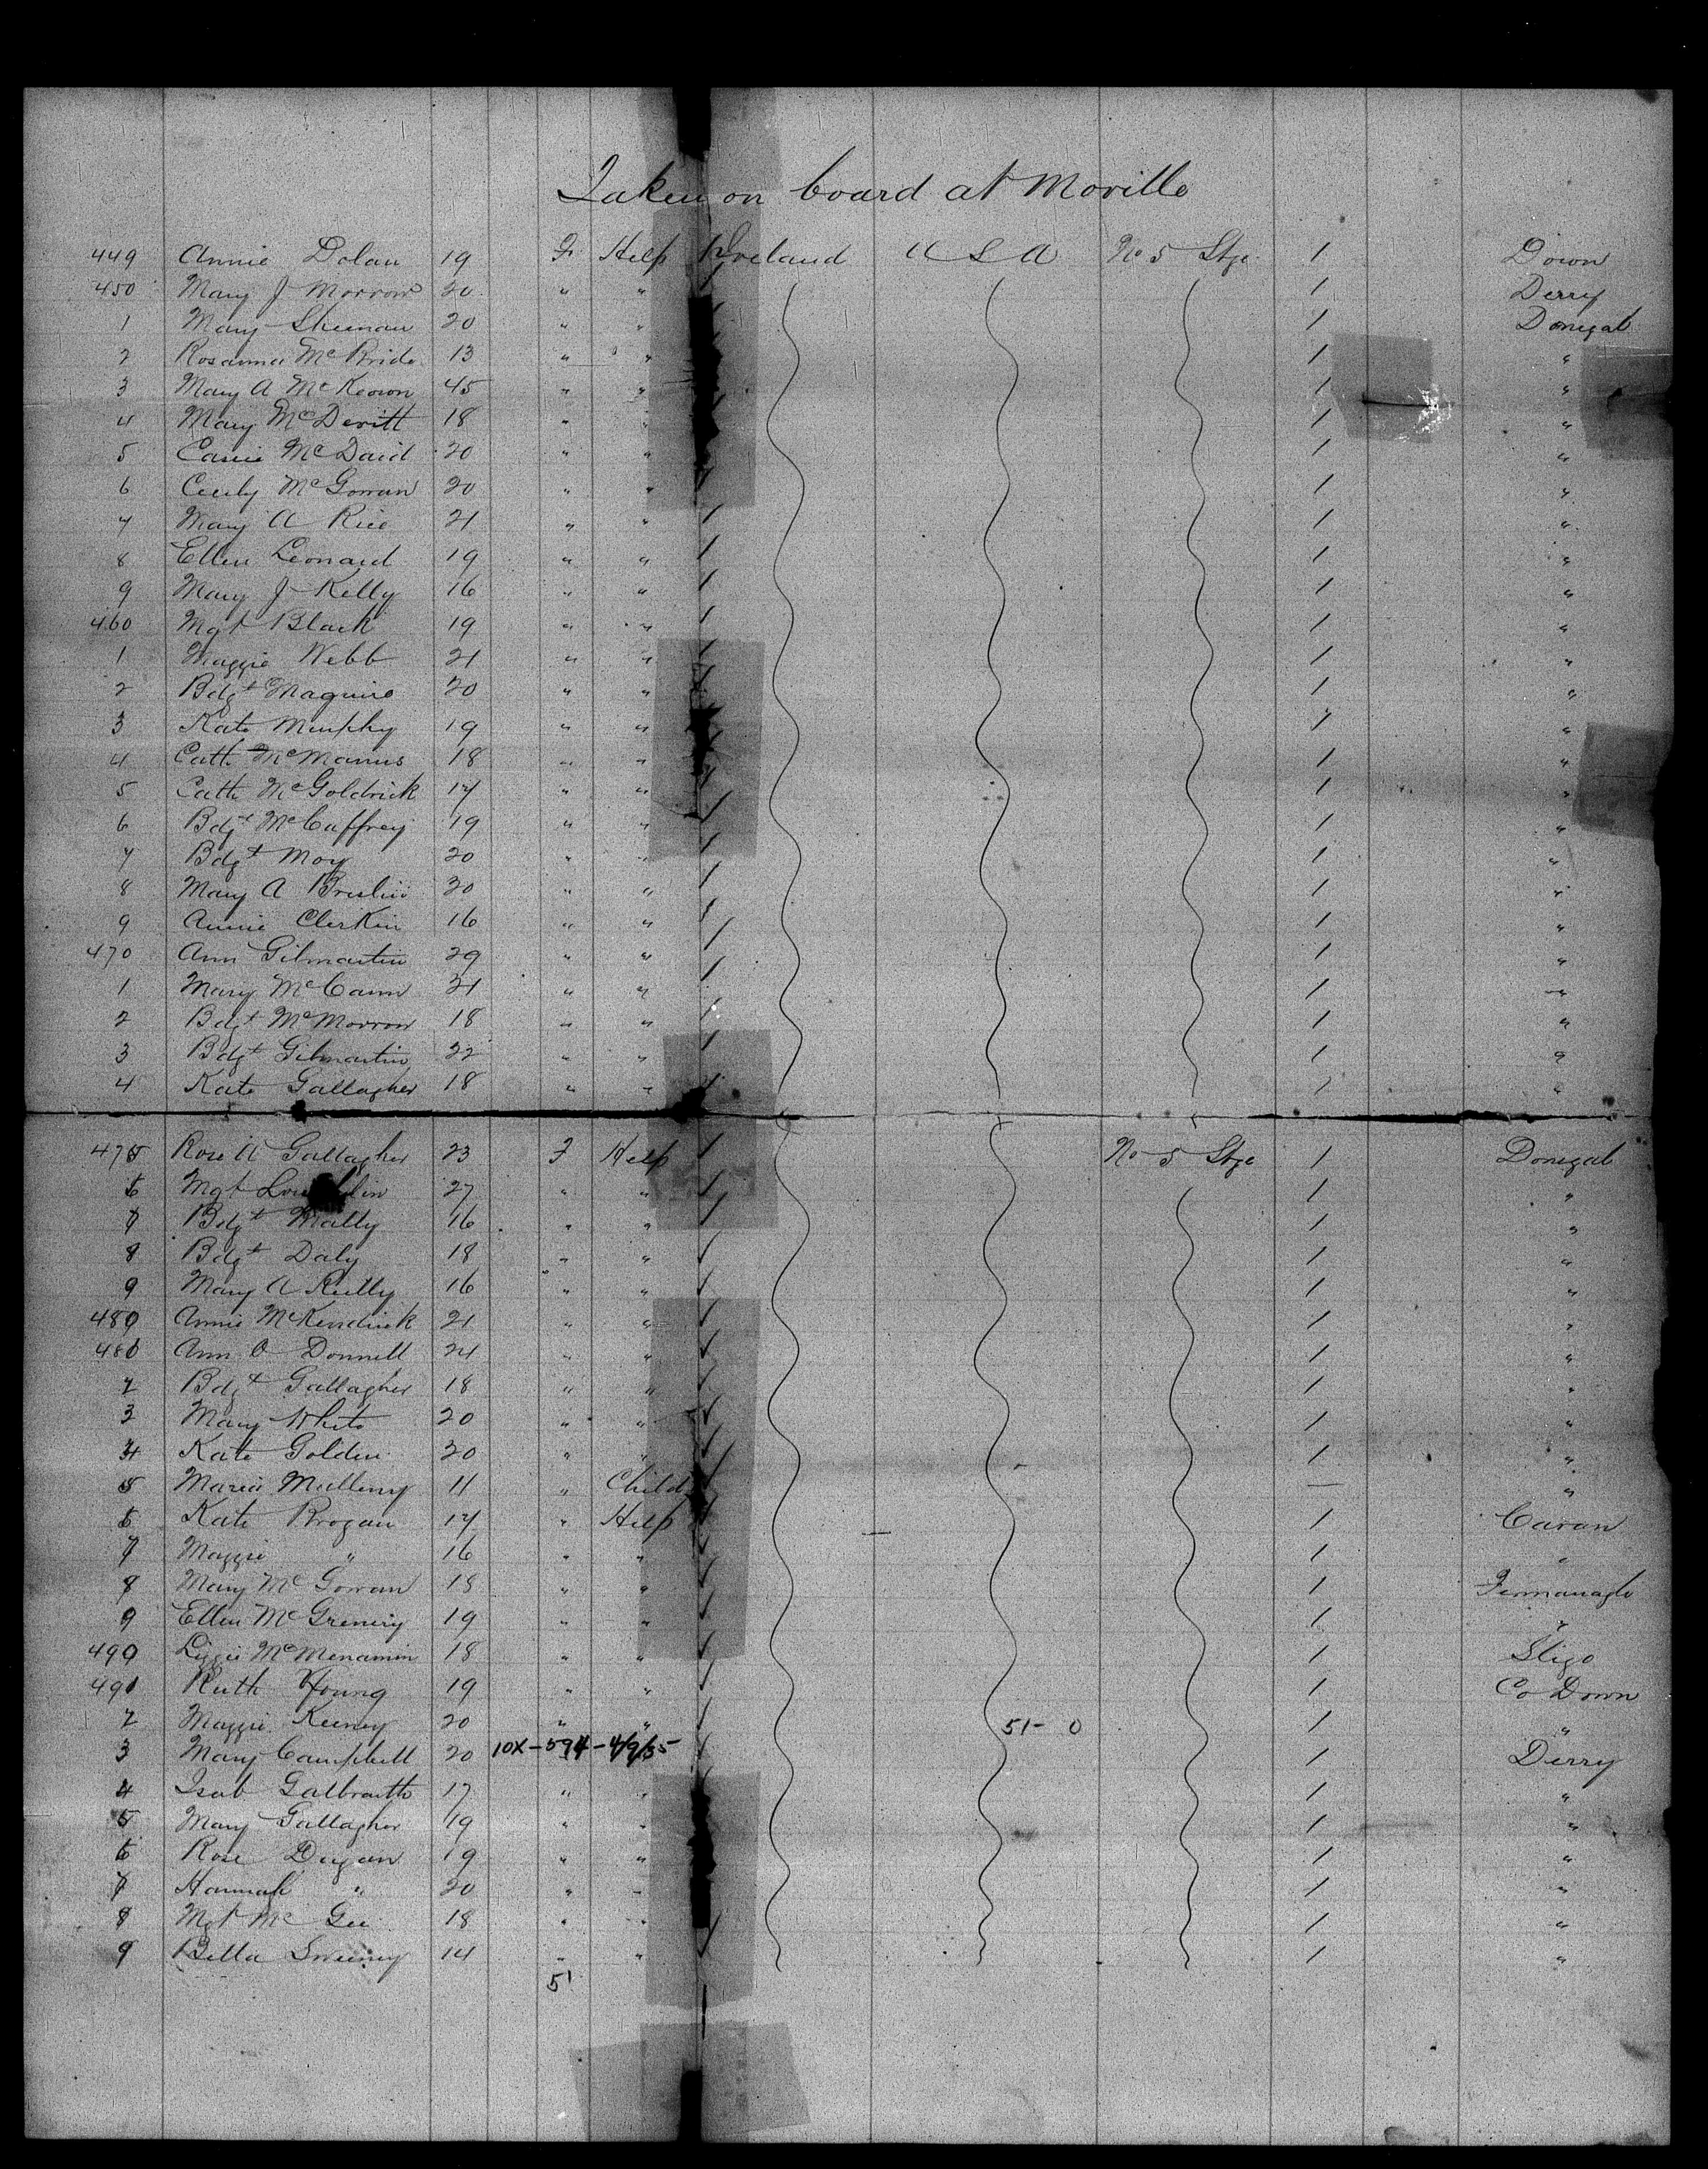 Taken on board at Moville
449 Annie Dolan 19 F Help Ireland U S A No 5 Stge 1 Down
450 Mary J Morrow 20 " " 1 Derry
1 Mary Sheenan 20 " " 1 Donegal
2 Rosanna McBride 13 " " 1 "
3 Mary A McKeown 45 " " 1 "
4 Mary McDevitt 18 " " 1 "
5 Cassie McDaid 20 " " 1 "
6 Cecily McGowan 20 " " 1 "
7 Mary A Rice 21 " " 1 "
8 Ellen Leonard 19 " " 1 "
9 Mary J Kelly 16 " " 1 "
460 Mgt Black 19 " " 1 "
1 Maggie Webb 21 " " 1 "
2 Bdgt Maguire 20 " " 1 "
3 Kate Murphy 19 " " 1 "
4 Cath McManus 18 " " 1 "
5 Cath McGoldrick 17 " " 1 "
6 Bdgt McCaffrey 19 " " 1 "
7 Bdgt Moy 20 " " 1 "
8 Mary A Breslin 30 " " 1 "
9 Annie Clerkin 16 " " 1 "
470 Ann Gilmartin 29 " " 1 "
1 Mary McCann 21 " " 1 "
2 Bdgt McMorrow 18 " " 1 "
3 Bdgt Gilmartin 22 " " 1 "
4 Kate Gallagher 18 " " 1 "
475 Rose A Gallagher 23 F Help 1 No 5 Stge 1 Donegal
6 Mgt 27 " " 1 "
7 Bdgt Mally 16 " " 1 "
8 Bdgt Daly 18 " " 1 "
9 Mary A Reilly 16 " " 1 "
480 Annie McKendrick 21 " " 1 "
481 Ann O Donnell 24 " " 1 "
2 Bdgt Gallagher 18 " " 1 "
3 Mary White 20 " " 1 "
4 Kate Golden 20 " " 1 "
5 Maria Mulleny 11 " Child — "
6 Kate Brogan 17 " Help 1 Cavan
7 Maggie " 16 " " 1 "
8 Mary McGowan 18 " " 1 Fermanagh
9 Ellen McGrenery 19 " " 1 "
490 Lizzie McMenamin 18 " " 1 Sligo
491 Ruth Young 19 " " 1 Co Down
2 Maggie Keeney 20 " " 51- 0 1 "
3 Mary Campbell 20 10X-594-4/9/35 1 Derry
4 Isab Galbraith 17 " " 1 "
5 Mary Gallagher 19 " " 1 "
6 Rose Dugan 19 " " 1 "
7 Hannah " 20 " " 1 "
8 Mgt McGee 18 " " 1 "
9 Bella Sweeny 14 " " 1 "
51